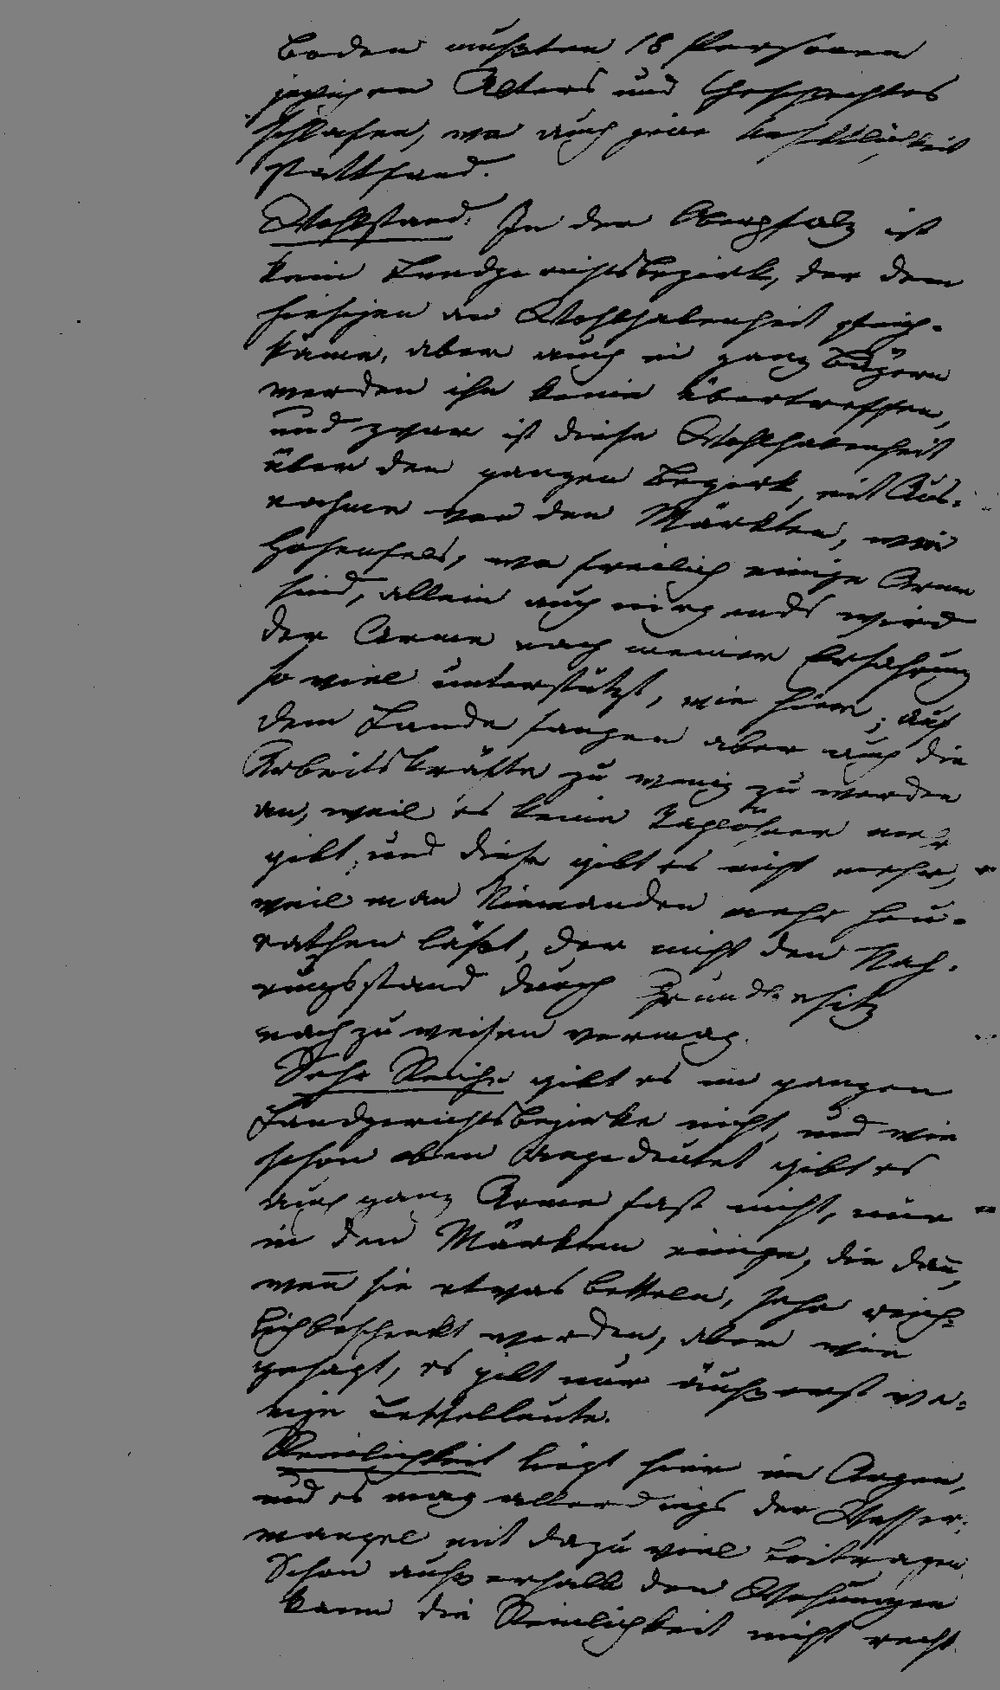 Boden mußten 18 Personen
jeglichen Alters und Geschlechtes
schlafen, wo auch jede Unsittlichkeit
stattfand.
Wohlstand. In der Oberpfalz ist
kein Landgerichtsbezirk, der dem
hiesigen an Wohlhabenheit gleich-
käme, aber auch in ganz Bayern
werden ihn keine übertreffen,
und zwar ist diese Wohlhabenheit
über den ganzen Bezirk, mit Aus-
nahme von den Märkten, wie
Hohenfels, wo freilich einige Arme
sind, allein auch nirgends wird
der Arme nach meiner Erfahrung
so viel unterstützt, wie hier; auf
dem Lande fangen aber auch die
Arbeitskräfte zu wenig zu werden
an, weil es keine Taglöhner mehr
gibt, und diese gibt es nicht mehr,
weil man Niemanden mehr heu-
rathen läßt, der nicht den Nah-
rungsstand durch Grundbesitz
nachzuweisen vermag.
Sehr Reiche gibt es im ganzen
Landgerichtsbezirke nicht, und wie
schon oben angedeutet gibt es
auch ganz Arme fast nicht, nur
in den Märkten einige, die dañ,
weñ sie etwas betteln, sehr reich-
lich beschenkt werden, aber wie
gesagt, es gibt nur äußerst we-
nige Bettelleute.
Reinlichkeit liegt hier im Argen,
und es mag allerdings der Wasser-
mangel mit dazu viel beitragen.
Schon außerhalb den Wohnungen
kann die Reinlichkeit nicht recht